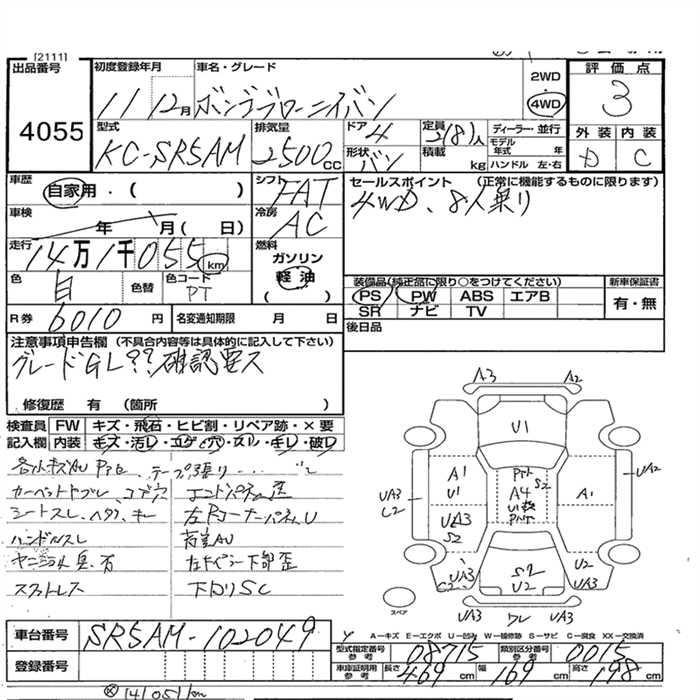 [2111]
出品番号
4055
初度登録年月
11年 12月
車名・グレード
ボンゴブローニイバン
2WD
4WD
評価点
3
外装 内装
D C
型式
KC-SR5AM
排気量
2500cc
ドア
4
形状
バン
定員
2(8)人
積載 kg
ディーラー・並行
モデル年式 年
ハンドル 左・右
車歴
自家用・( )
シフト
FAT
車検
年 月( 日)
冷房
AC
走行
14万1千055km
燃料
ガソリン
軽油
( )
色
白
色替
色コード
PT
R券
6010円
名変通知期限 月 日
セールスポイント (正常に機能するものに限ります)
4WD、8人乗り
装備品(純正品に限り○をつけてください)
PS PW ABS エアB
SR ナビ TV
新車保証書
有・無
後日品
注意事項申告欄 (不具合内容等は具体的に記入して下さい)
グレードGL??確認要ス
修復歴 有 (箇所 )
検査員記入欄
FW キズ・飛石・ヒビ割・リペア跡・×要
内装 キズ・汚レ・コゲ・穴・スレ・キレ・破レ
カーペットヤブレ、コゲ穴
シートスレ、ヘタリ、キレ
ハンドルスレ
ヤニ汚れ臭有
エンドパネル歪
左Rコーナーパネル U
荷室AU
下回りSC
A3 A2
U1
A1
U1
A4
S2
A1
UA2
UA3
C2
UA3
S2
UA3
C2
S2
U2
U2
UA3
UA3
UA3
スペア
A-キズ E-エクボ U-凹ミ W-補修跡 S-サビ C-腐食 XX-交換済
車台番号
SR5AM-102049
登録番号
型式指定番号 参考
08715
類別区分番号 参考
0015
車庫証明用 参考
長さ 469cm
幅 169cm
高さ 198cm
141051km